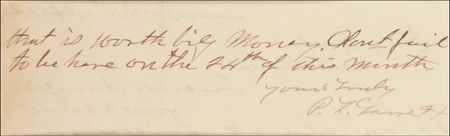 that is worth big Money, Dont fail
to be here on the 24th of this month
yours truly
P. F. Garrett